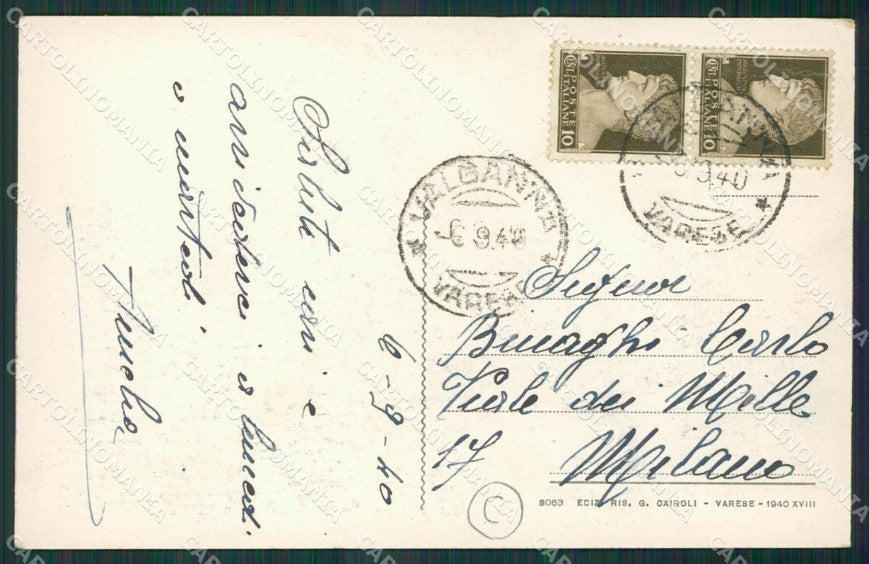 Saluti cari e
arrivederci a lunedì
o martedì
6-9-40
VALGANNA
-6.9.40
VARESE
POSTE
ITALIANE
CENT
10
POSTE
ITALIANE
CENT
10
9.40
VARESE
Signor
Binaghi Carlo
Viale dei Mille
17 Milano
C
3063 EDIZ. RIS. G. CAIROLI - VARESE - 1940 XVIII
CARTOLINOMANIA